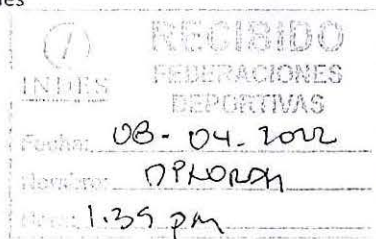 es
RECIBIDO
INDES
FEDERACIONES
DEPORTIVAS
Fecha: 08-04-2022
Nombre:
Hora: 1:39 pm